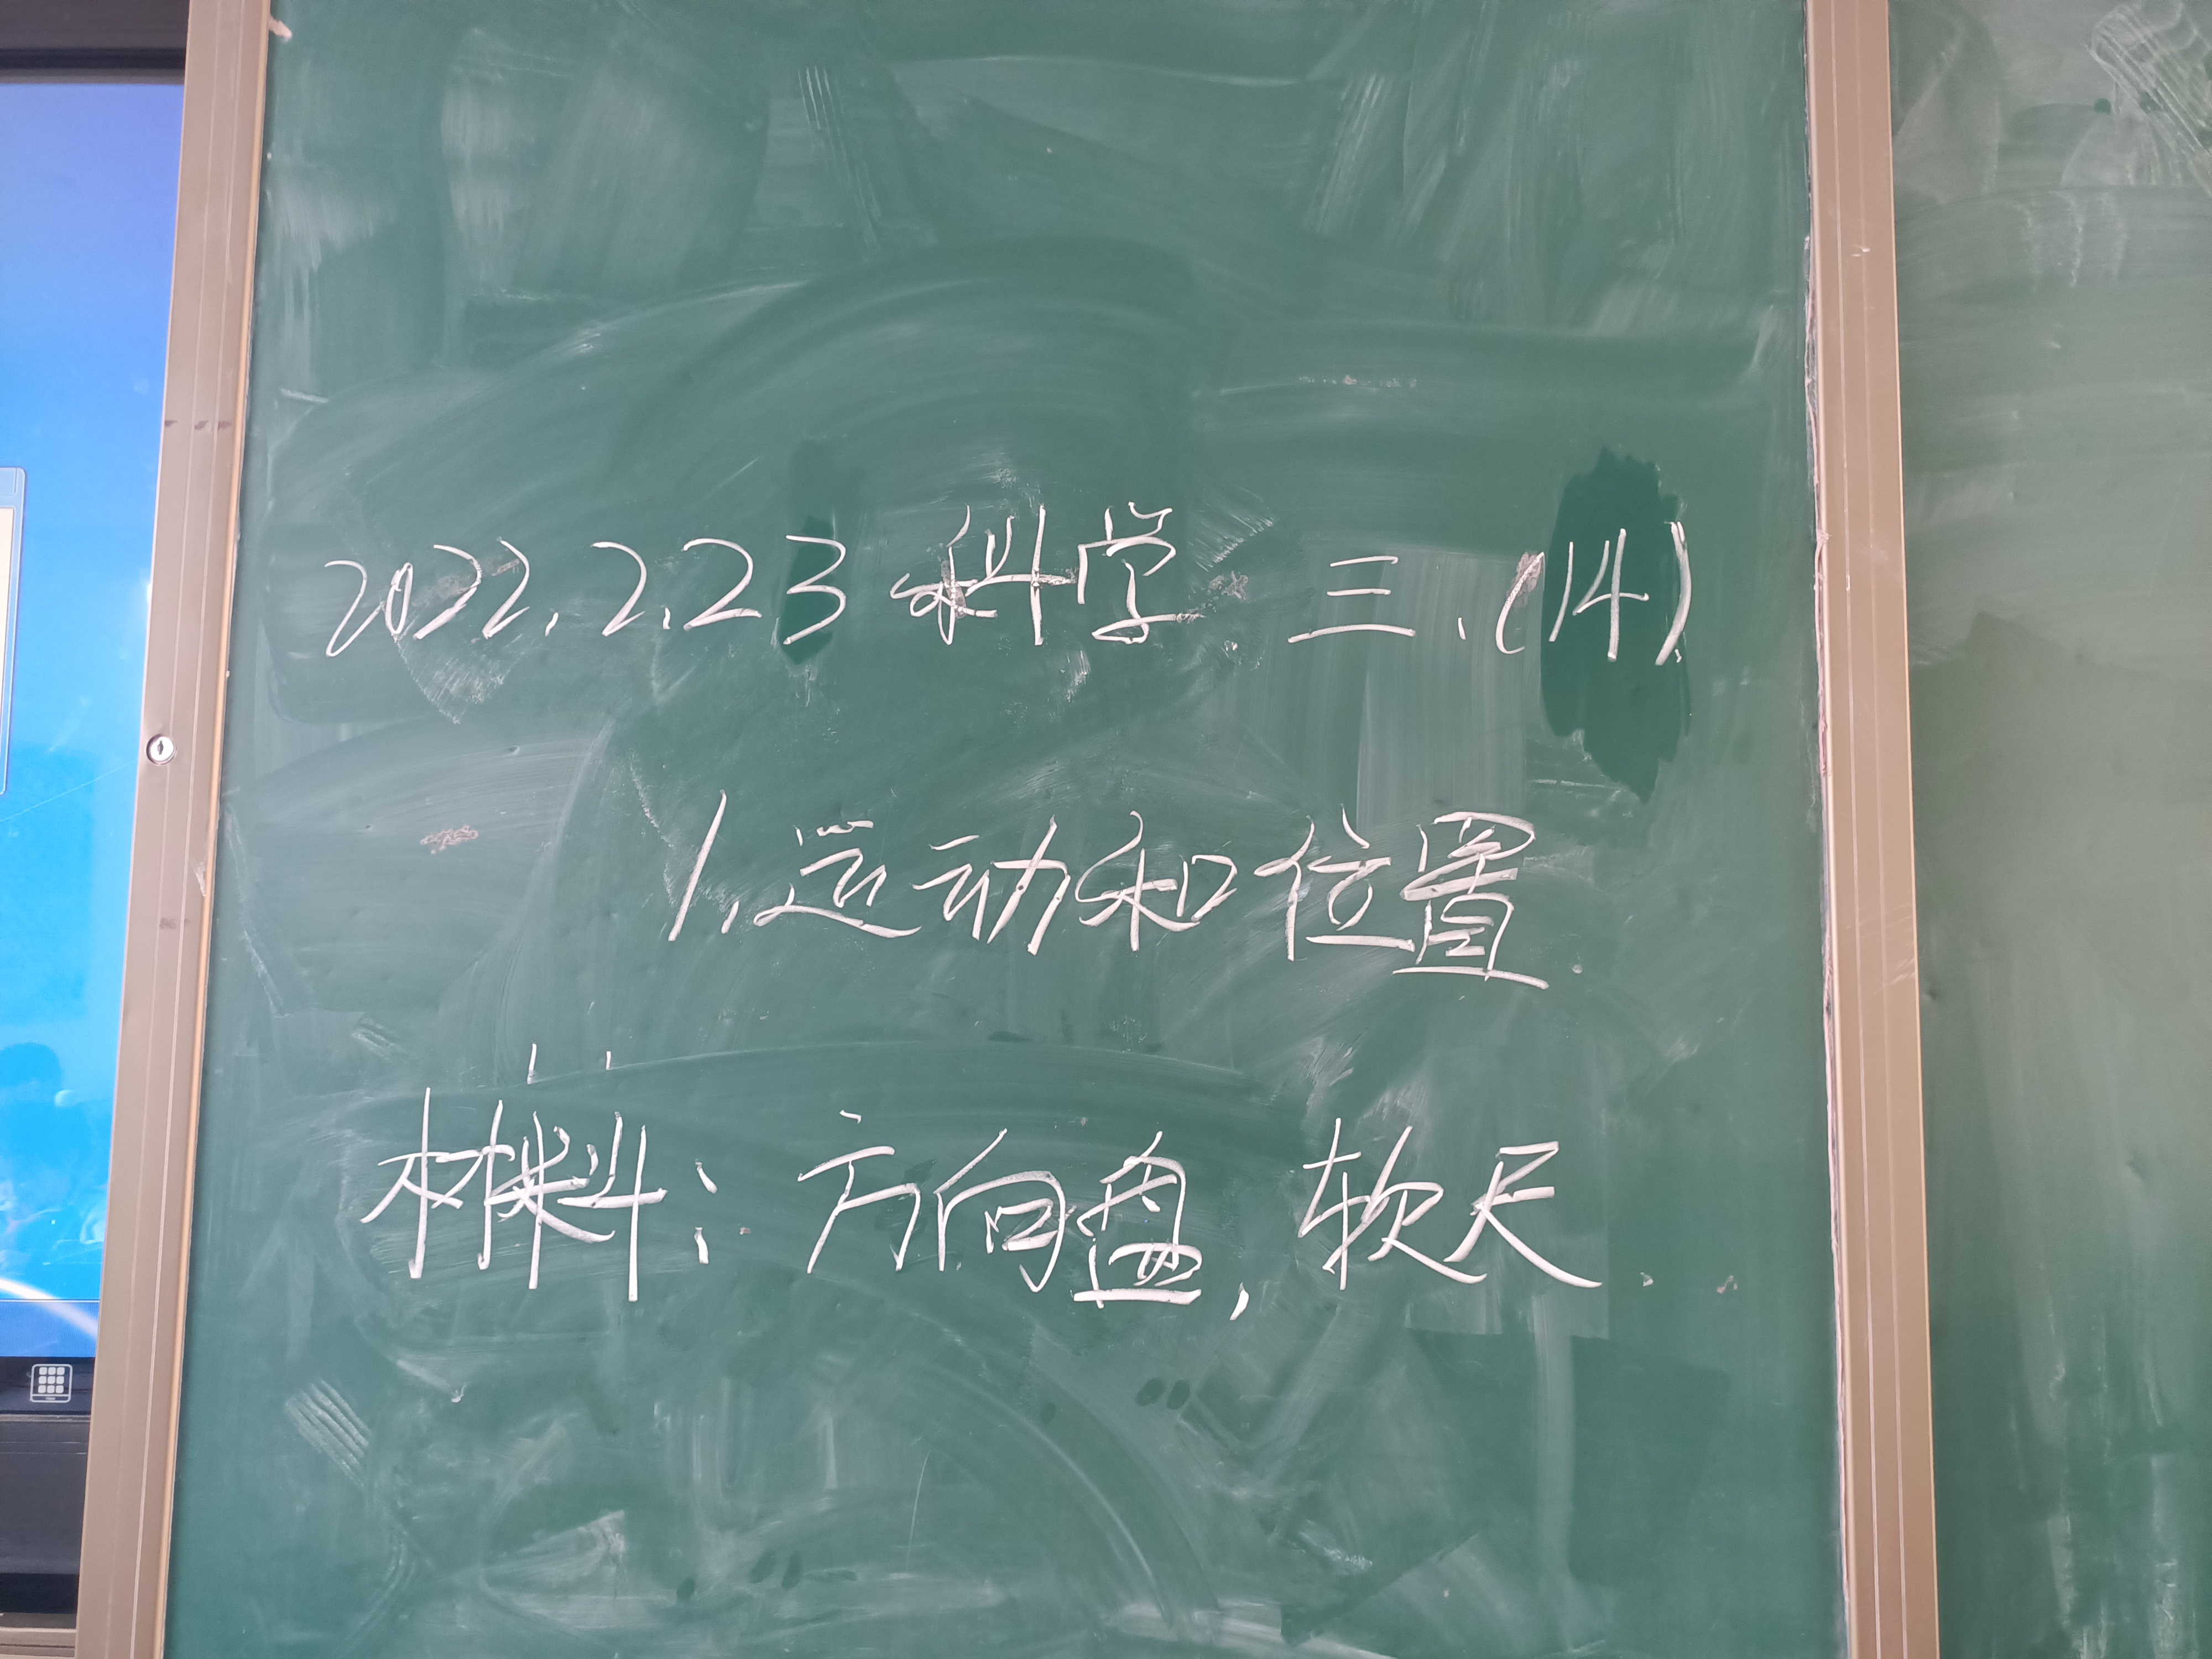 2022.2.23 科学 三.(14)
1.运动和位置
材料：方向盘，软尺.